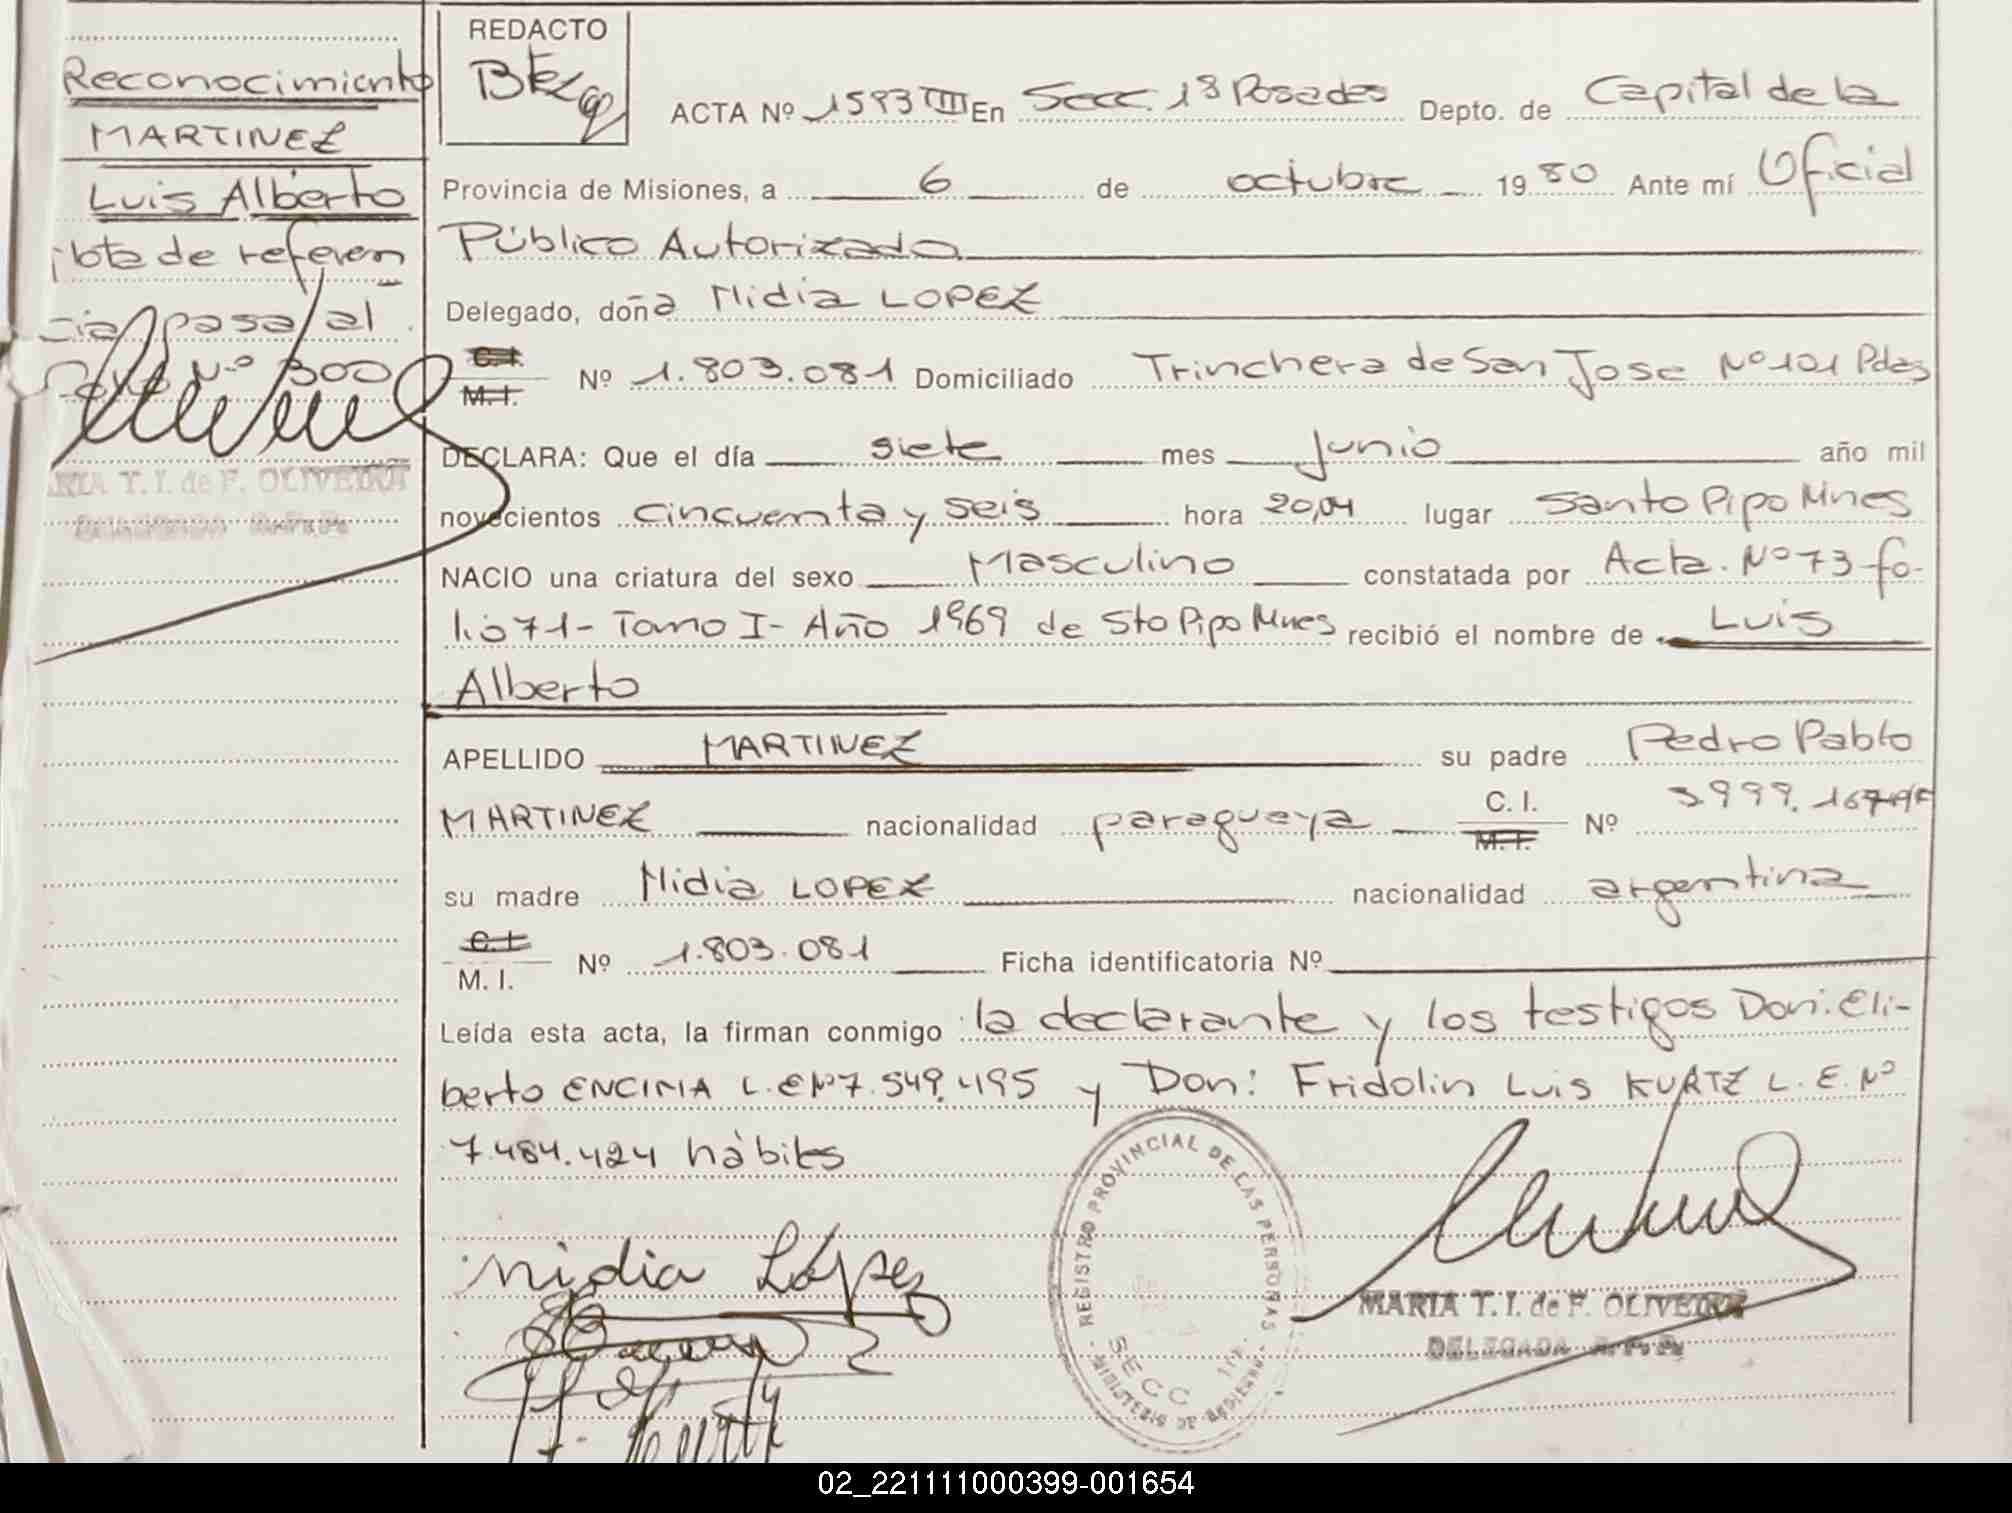 Reconocimiento
MARTINEZ
Luis Alberto
Nota de referen
cia pasa al
Nº 300
MARIA T. I. de F. OLIVEIRA
DELEGADA R.P.P.
REDACTO
ACTA Nº 1593 III En Secc. 1ª Posadas Depto. de Capital de la
Provincia de Misiones, a 6 de octubre 1980 Ante mí Oficial
Público Autorizado
Delegado, doña Nidia LOPEZ
C.I. M.I. Nº 1.803.081 Domiciliado Trinchera de San Jose Nº 101 Pdas
DECLARA: Que el día siete mes junio año mil
novecientos cincuenta y seis hora 20,04 lugar Santo Pipo Mnes
NACIO una criatura del sexo Masculino constatada por Acta. Nº 73 fo-
lio 71- Tomo I- Año 1969 de Sto Pipo Mnes recibió el nombre de Luis
Alberto
APELLIDO MARTINEZ su padre Pedro Pablo
MARTINEZ nacionalidad paraguaya C. I. M. I. Nº
su madre Nidia LOPEZ nacionalidad argentina
C. I. M. I. Nº 1.803.081 Ficha identificatoria Nº
Leída esta acta, la firman conmigo la declarante y los testigos Don: Eli-
berto ENCINA L.E Nº 7.549.495 y Don: Fridolin Luis KURTZ L.E. Nº
7.484.424 hábiles
nidia López
REGISTRO PROVINCIAL DE LAS PERSONAS
SECC
MINISTERIO DE GOBIERNO
MARIA T. I. de F. OLIVEIRA
DELEGADA R.P.P.
02_221111000399-001654